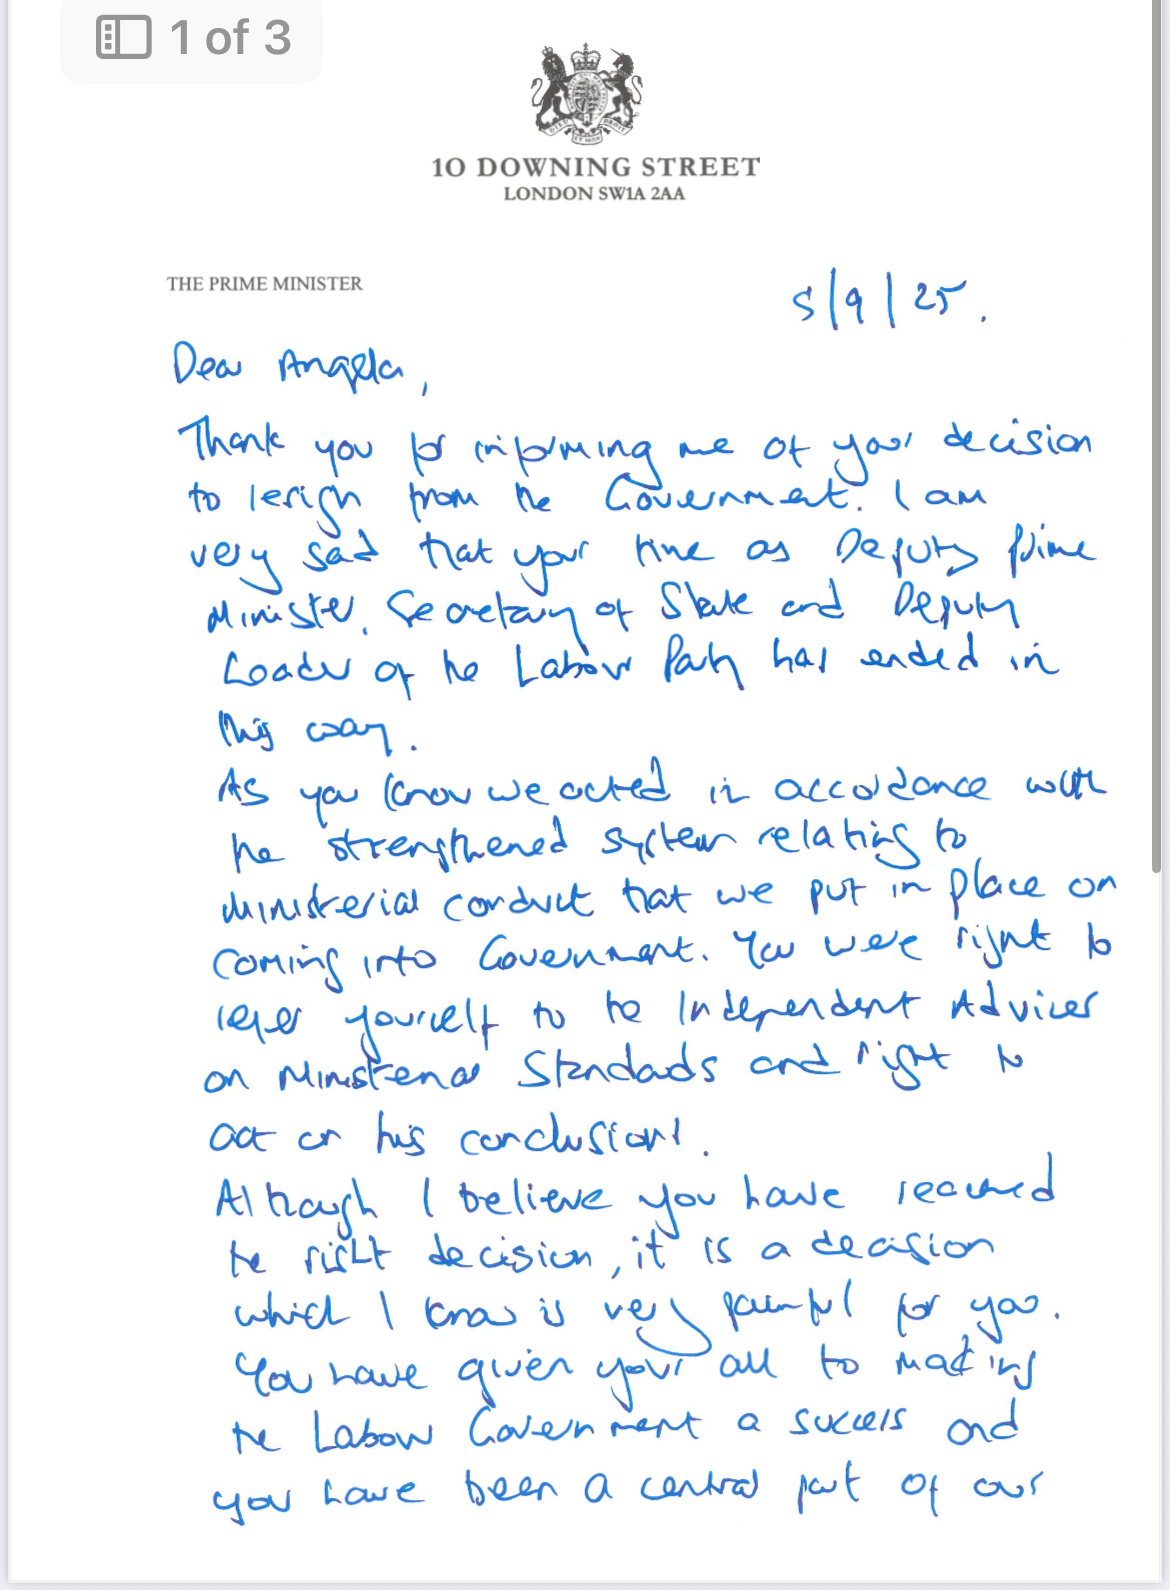 1 of 3
10 DOWNING STREET
LONDON SW1A 2AA
THE PRIME MINISTER
5/9/25.
Dear Angela,
Thank you for informing me of your decision
to resign from the Government. I am
very sad that your time as Deputy Prime
Minister, Secretary of State and Deputy
Leader of the Labour Party has ended in
this way.
As you know we acted in accordance with
the strengthened system relating to
ministerial conduct that we put in place on
coming into Government. You were right to
refer yourself to the Independent Adviser
on Ministerial Standards and right to
act on his conclusions.
Although I believe you have reached
the right decision, it is a decision
which I know is very painful for you.
You have given your all to making
the Labour Government a success and
you have been a central part of our